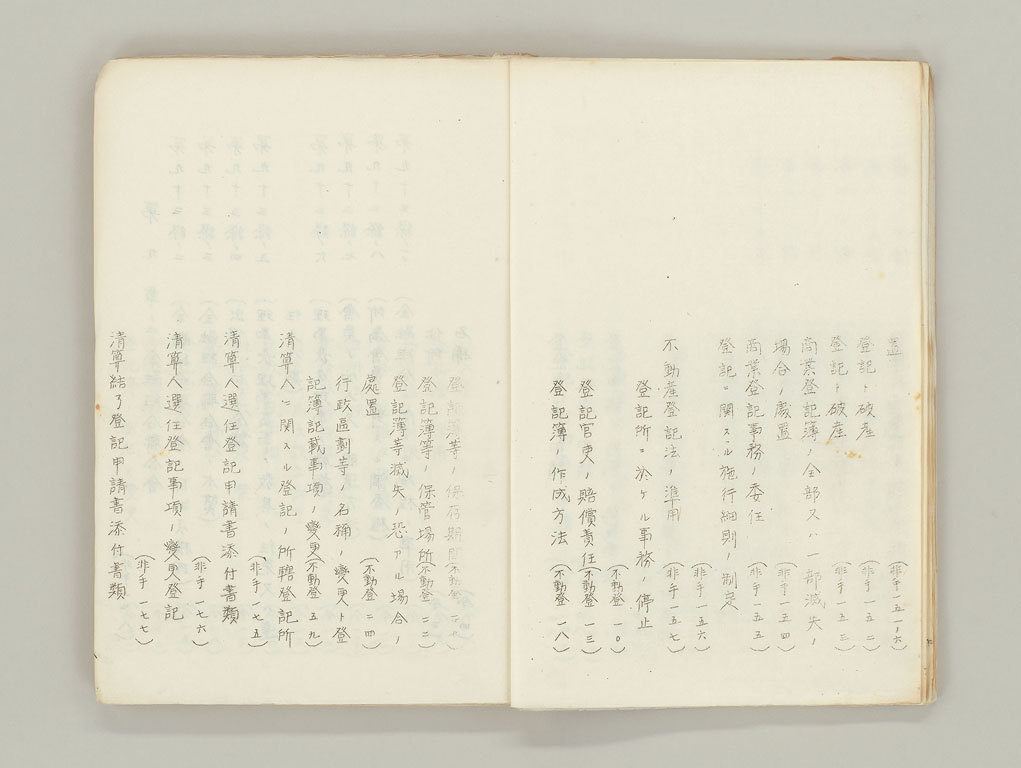 置
(非手 一五一ノ六)
登記ト破産
(非手 一五二)
登記ト破産
(非手 一五三)
商業登記簿ノ全部又ハ一部滅失ノ
場合ノ處置
(非手 一五四)
商業登記事務ノ委任
(非手 一五五)
登記ニ関スル施行細則ノ制定
(非手 一五六)
不動産登記法ノ準用
(非手 一五七)
登記所ニ於ケル事務ノ停止
(不動登 一〇)
登記官吏ノ賠償責任
(不動登 一三)
登記簿ノ作成方法
(不動登 一八)
登記簿等ノ保存期間
登記簿等ノ保管場所
(不動登 二二)
登記簿等滅失ノ恐アル場合ノ
處置
(不動登 二四)
行政區劃等ノ名稱ノ變更ト登
記簿記載事項ノ變更
(不動登 五九)
清算人ニ関スル登記ノ所轄登記所
(非手 一七五)
清算人選任登記申請書添付書類
(非手 一七六)
清算人選任登記事項ノ變更登記
(非手 一七七)
清算結了登記申請書添付書類